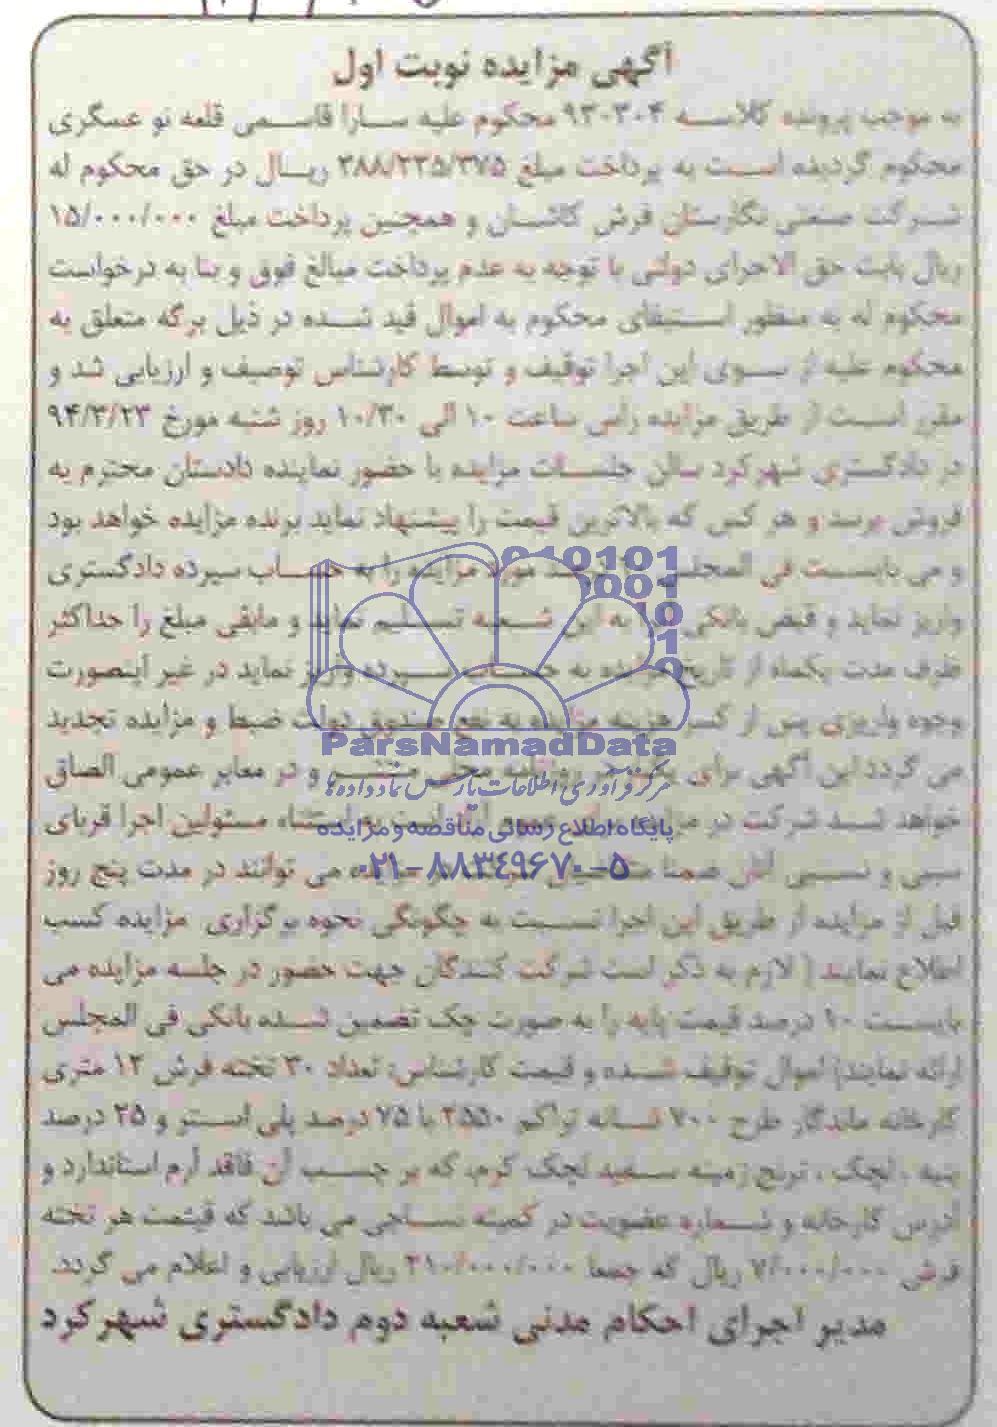 آگهی مزایده نوبت اول
به موجب پرونده کلاسه ۹۳۰۳۰۴ محکوم علیه سارا قاسمی قلعه نو عسگری
محکوم گردیده است به پرداخت مبلغ ۲۸۸/۲۳۵/۳۷۵ ریال در حق محکوم له
شرکت صنعتی نگارستان فرش کاشان و همچنین پرداخت مبلغ ۱۵/۰۰۰/۰۰۰
ریال بابت حق الاجرای دولتی با توجه به عدم پرداخت مبالغ فوق و بنا به درخواست
محکوم له به منظور استیفای محکوم به اموال قید شده در ذیل برگه متعلق به
محکوم علیه از سوی این اجرا توقیف و توسط کارشناس توصیف و ارزیابی شد و
مقرر است از طریق مزایده رأس ساعت ۱۰ الی ۱۰/۳۰ روز شنبه مورخ ۹۴/۳/۲۳
در دادگستری شهرکرد سالن جلسات مزایده با حضور نماینده دادستان محترم به
فروش برسد و هر کس که بالاترین قیمت را پیشنهاد نماید برنده مزایده خواهد بود
و می بایست فی المجلس مورد مزایده را به حساب سپرده دادگستری
واریز نماید و قبض بانکی را به این شعبه تسلیم نماید و مابقی مبلغ را حداکثر
ظرف مدت یکماه از تاریخ مزایده به حساب سپرده واریز نماید در غیر اینصورت
وجوه واریزی پس از کسر هزینه مزایده به نفع صندوق دولت ضبط و مزایده تجدید
می گردد این آگهی برای روزنامه محلی منتشر و در معابر عمومی الصاق
خواهد شد شرکت در مزایده برای عموم آزاد است به استثناء مسئولین اجرا اقربای
سببی و نسبی آنان ضمنا می توانند در مدت پنج روز
قبل از مزایده از طریق این اجرا نسبت به چگونگی نحوه برگزاری مزایده کسب
اطلاع نمایند ( لازم به ذکر است شرکت کنندگان جهت حضور در جلسه مزایده می
بایست ۱۰ درصد قیمت پایه را به صورت چک تضمین شده بانکی فی المجلس
ارائه نمایند) اموال توقیف شده و قیمت کارشناس: تعداد ۳۰ تخته فرش ۱۲ متری
کارخانه ماندگار طرح ۷۰۰ شانه تراکم ۲۵۵۰ با ۷۵ درصد پلی استر و ۲۵ درصد
پنبه ، لچک ، ترنج زمینه سفید لچک کرم، که بر چسب آن فاقد آرم استاندارد و
آدرس کارخانه و شماره عضویت در کمیته نساجی می باشد که قیمت هر تخته
فرش ۷/۰۰۰/۰۰۰ ریال که جمعا ۲۱۰/۰۰۰/۰۰۰ ریال ارزیابی و اعلام می گردد.
مدیر اجرای احکام مدنی شعبه دوم دادگستری شهرکرد
ParsNamadData
مرکز فرآوری اطلاعات پارس نماد داده ها
پایگاه اطلاع رسانی مناقصه و مزایده
۰۲۱-۸۸۳۴۹۶۷۰-۵